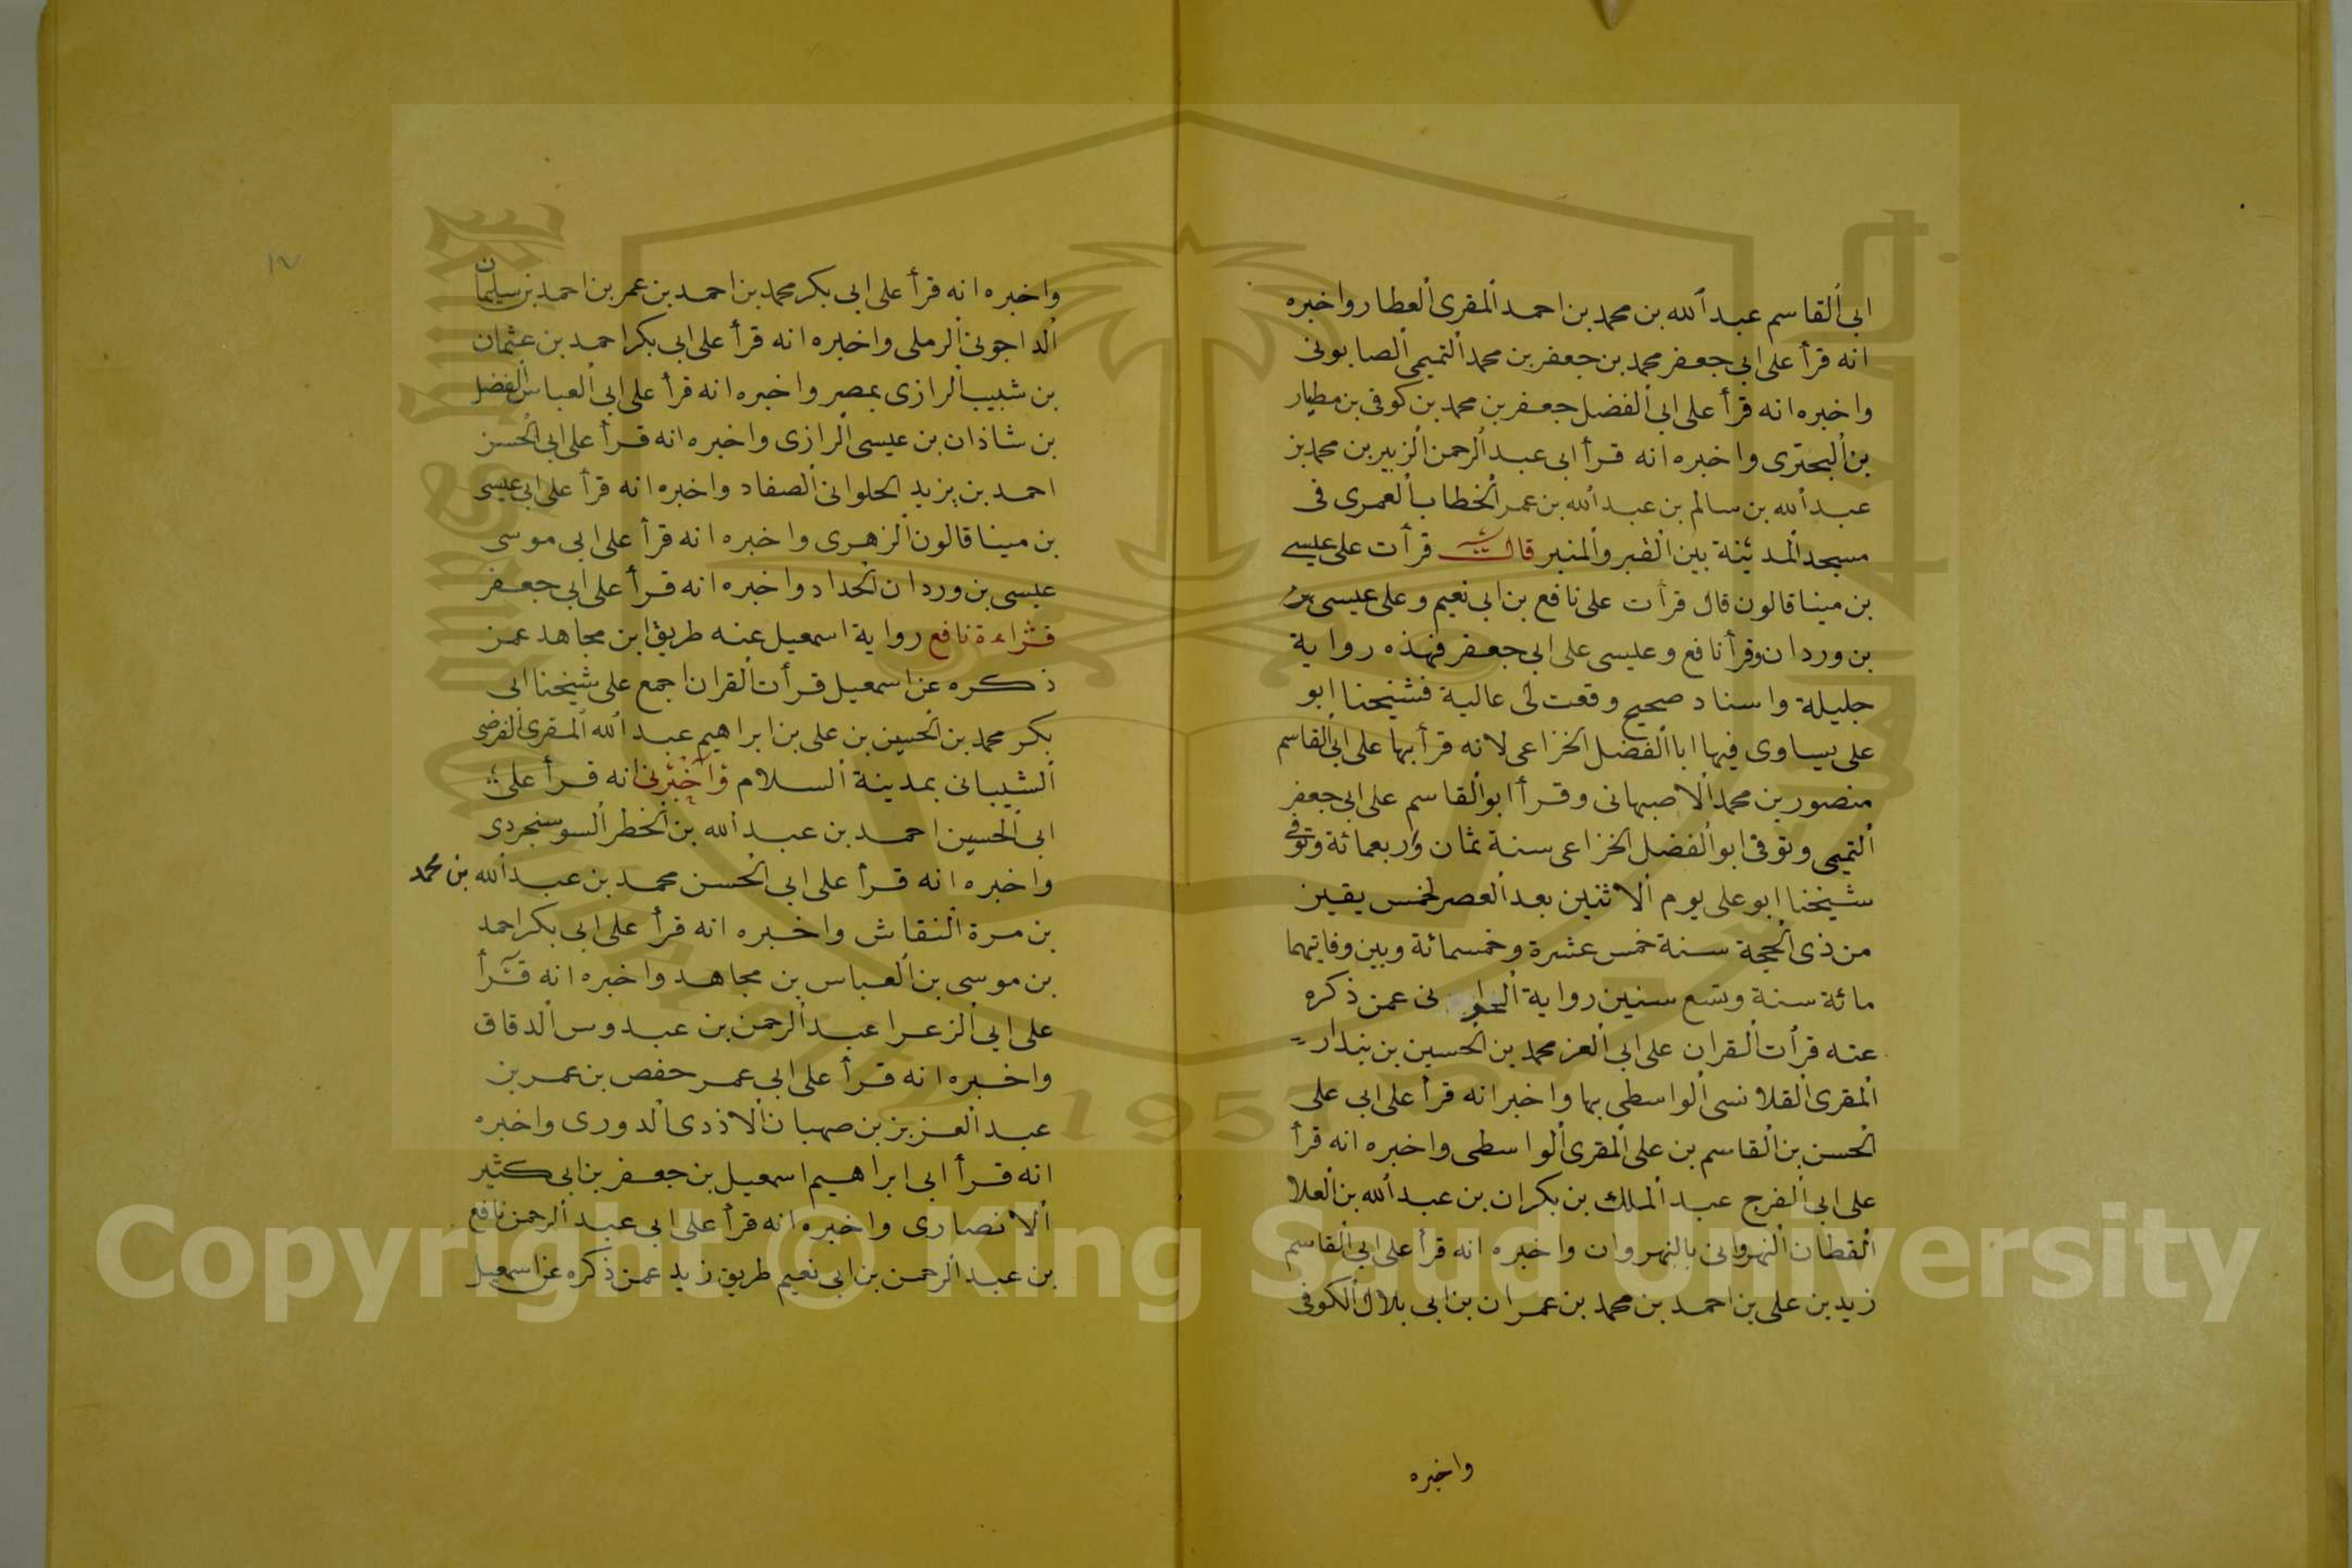 ابى القاسم عبد الله بن محمد بن احمد المقرى العطار واخبره
انه قرأ على ابى جعفر محمد بن جعفر بن محمد التميمى الصابونى
واخبره انه قرأ على ابى الفضل جعفر بن محمد بن كوفى بن مطيار
بن البحترى واخبره انه قرأ ابى عبد الرحمن الزبير بن محمد بن
عبد الله بن سالم بن عبد الله بن عمر الخطاب العمرى فى
مسجد المدينة بين القبر والمنبر قال قرأت على عيسى
بن مينا قالون قال قرأت على نافع بن ابى نعيم وعلى عيسى بن
بن وردان وقرأ نافع وعيسى على ابى جعفر فهذه رواية
جليلة واسناد صحيح وقعت لى عالية فشيخنا ابو
على يساوى فيها ابا الفضل الخزاعى لانه قرأ بها على ابى القاسم
منصور بن محمد الاصبهانى وقرأ ابو القاسم على ابى جعفر
التميمى وتوفى ابو الفضل الخزاعى سنة ثمان واربعمائة وتوفى
شيخنا ابو على يوم الاثنين بعد العصر لخمس يقين
من ذى الحجة سنة خمس عشرة وخمسمائة وبين وفاتيهما
مائة سنة وتسع سنين رواية نى عمن ذكره
عنه قرأت القران على ابى العز محمد بن الحسين بن بندار
المقرى القلانسى الواسطى بها واخبر انه قرأ على ابى على
الحسن بن القاسم بن على المقرى الواسطى واخبره انه قرأ
على ابى الفرج عبد الملك بن بكران بن عبد الله بن العلا
القطان النهروانى بالنهروان واخبره انه قرأ على ابى القاسم
زيد بن على بن احمد بن محمد بن عمران بن ابى بلال الكوفى
واخبره
١٧
واخبره انه قرأ على ابى بكر محمد بن احمد بن عمر بن احمد بن سليمان
الداجونى الرملى واخبره انه قرأ على ابى بكر احمد بن عثمان
بن شبيب الرازى بمصر واخبره انه قرأ على ابى العباس الفضل
بن شاذان بن عيسى الرازى واخبره انه قرأ على ابى الحسن
احمد بن يزيد الحلوانى الصفاد واخبره انه قرأ على ابى عيسى
بن مينا قالون الزهرى واخبره انه قرأ على ابى موسى
عيسى بن وردان الحداد واخبره انه قرأ على ابى جعفر
قراءة نافع رواية اسمعيل عنه طريق ابن مجاهد عمن
ذكره عن اسمعيل قرأت القران اجمع على شيخنا ابى
بكر محمد بن الحسين بن على بن ابراهيم عبد الله المقرى الفرضى
الشيبانى بمدينة السلام واخبرنى انه قرأ على
ابى الحسين احمد بن عبد الله بن الخطر السوسنجردى
واخبره انه قرأ على ابى الحسن محمد بن عبد الله بن محمد
بن مرة النقاش واخبره انه قرأ على ابى بكر احمد
بن موسى بن العباس بن مجاهد واخبره انه قرأ
على ابى الزعرا عبد الرحمن بن عبدوس الدقاق
واخبره انه قرأ على ابى عمر حفص بن عمر بن
عبد العزيز بن صهبان الاذدى الدورى واخبره
انه قرأ ابى ابراهيم اسمعيل بن جعفر بن ابى كثير
الانصارى واخبره انه قرأ على ابى عبد الرحمن نافع
بن عبد الرحمن بن ابى نعيم طريق زيد عمن ذكره عن اسمعيل
Copyright © King Saud University